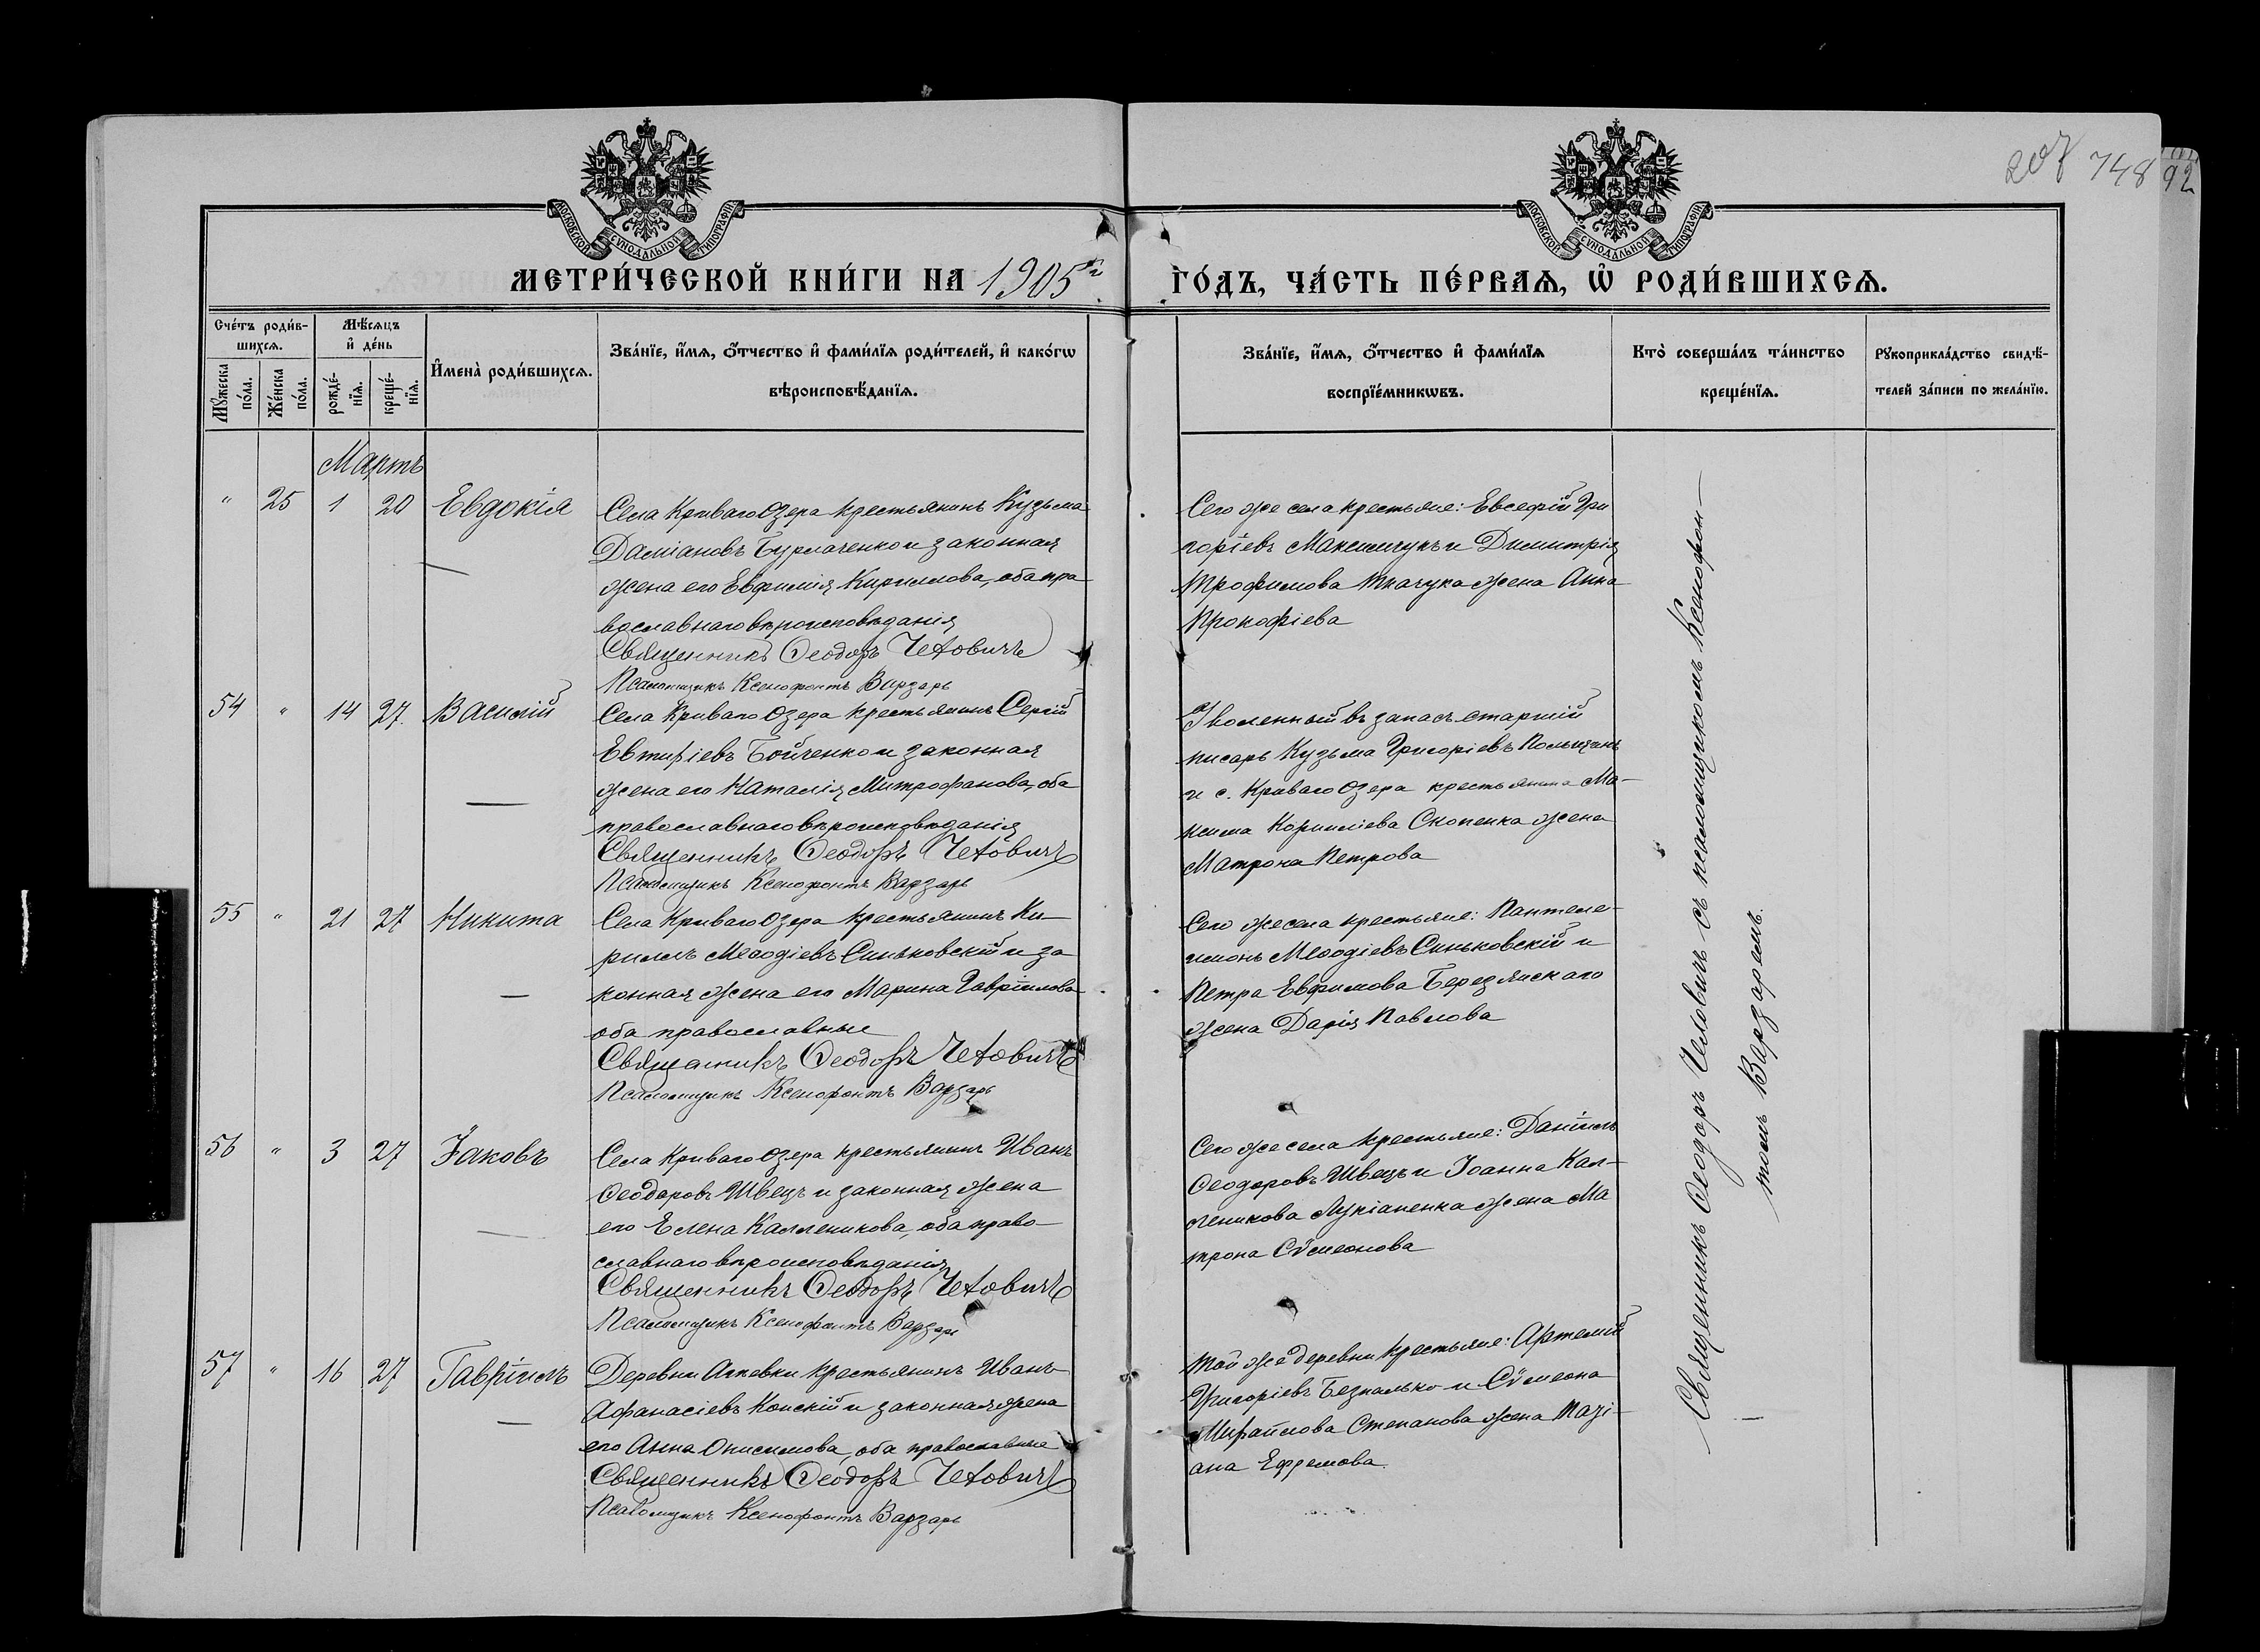 207 748 92
МОСКОВСКОЙ СѴНОДАЛЬНОЙ ТИПОГРАФІИ
МОСКОВСКОЙ СѴНОДАЛЬНОЙ ТИПОГРАФІИ
МЕТРИ́ЧЕСКОЙ КНИ́ГИ НА 1905й ГО́ДЪ, ЧА́СТЬ ПЕ́РВАѦ, Ѡ҆ РОДИ́ВШИХСѦ.
Сче́тъ роди́в-
шихсѧ.
Мꙋ́жеска по́ла.
Же́нска по́ла.
Мѣ́сѧцъ
и҆ де́нь
рожде́-
нїѧ.
креще́-
нїѧ.
И҆мена̀ роди́вшихсѧ.
Зва́нїе, и҆́мѧ, ѻ҆́тчество и҆ фами́лїѧ роди́телей, и҆ како́гѡ
вѣроисповѣ́данїѧ.
Зва́нїе, и҆́мѧ, ѻ҆́тчество и҆ фами́лїѧ
воспрїе́мникѡвъ.
Кто̀ соверша́лъ та́инство
креще́нїѧ.
Рꙋкоприкла́дство свидѣ́-
телей за́писи по жела́нїю.
Мартъ
" 25 1 20 Евдокія
Села Криваго Озера крестьянинъ Кузьма
Даміановъ Бурлаченко и законная
жена его Евфимія Кириллова, оба пра
вославнаго вѣроисповѣданія
Священникъ Ѳеодоръ Человичъ
Псаломщикъ Ксенофонтъ Варзарь
Сего же села крестьяне: Евсефій Гри
горіевъ Максимчукъ и Димитрія
Трофимова Ткачука жена Анна
Прокофіева
54 " 14 27. Василій
Села Криваго Озера крестьянинъ Сергій
Евтифіевъ Бойченко и законная
жена его Наталія Митрофанова, оба
православнаго вѣроисповѣданія
Священникъ Ѳеодоръ Человичъ
Псаломщикъ Ксенофонтъ Варзарь
Уволенный въ запасъ старшій
писарь Кузьма Григоріевъ
и с. Криваго Озера крестьянина Ма-
ксима Корниліева Скопенка жена
Матрона Петрова
55 " 21 27 Никита
Села Криваго Озера крестьянинъ Ки-
риллъ Меѳодіевъ Синьковскій и за
конная жена его Марина Гавріилова
оба православные
Священникъ Ѳеодоръ Человичъ
Псаломщикъ Ксенофонтъ Варзарь
Сего же села крестьяне: Пантеле-
имонъ Меѳодіевъ Синьковскій и
Петра Евфимова Березянскаго
жена Дарія Павлова
56 " 3 27 Іаковъ
Села Криваго Озера крестьянинъ Иванъ
Ѳеодоровъ Швецъ и законная жена
его Елена Каллиникова, оба право-
славнаго вѣроисповѣданія
Священникъ Ѳеодоръ Человичъ
Псаломщикъ Ксенофонтъ Варзарь
Сего же села крестьяне: Даніилъ
Ѳеодоровъ Швецъ и Іоанна Кал-
леникова Лукіаненка жена Ма
трона Сѵмеонова
57 " 16 27 Гавріилъ
Деревни крестьянинъ Иванъ
Афанасіевъ Конскій и законная жена
его Анна Онисимова, оба православные
Священникъ Ѳеодоръ Человичъ
Псаломщикъ Ксенофонтъ Варзарь
Той же деревни крестьяне: Артемій
Григоріевъ Безпалько и Сѵмеона
Михайлова Степанова жена Тазі-
ана Ефремова.
Священникъ Ѳеодоръ Человичъ съ псаломщикомъ Ксенофон-
томъ Варзаремъ.